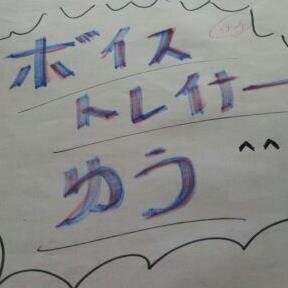 ボイス
トレイナー
ゆう ^^